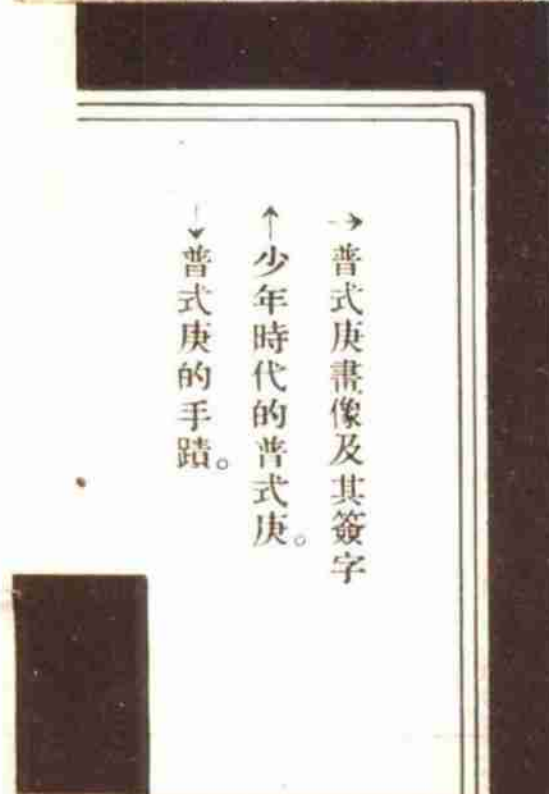 →普式庚畫像及其簽字
↑少年時代的普式庚。
↓普式庚的手蹟。